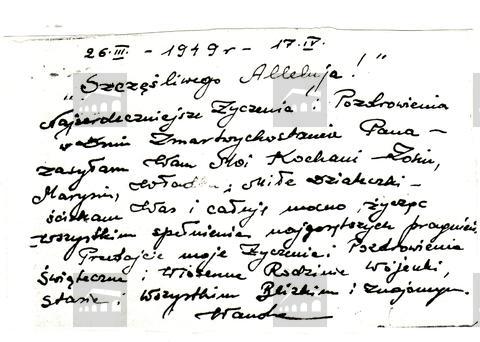 26.III. - 1949r - 17.IV.
"Szczęśliwego Alleluja!"
Najserdeczniejsze Życzenia i Pozdrowienia
w Dniu Zmartwychwstania Pana -
zasyłam Wam Moi Kochani - Zosiu,
Marysiu, Władku, Miłe Dziateczki -
ściskam Was i całuję mocno, życząc
wszystkim spełnienia najgorętszych pragnień.
Przekażcie moje Życzenia i Pozdrowienia
Świąteczne i Wiosenne Rodzinie Wójenki,
Stasi i Wszystkim Bliskim i Znajomym.
Wanda